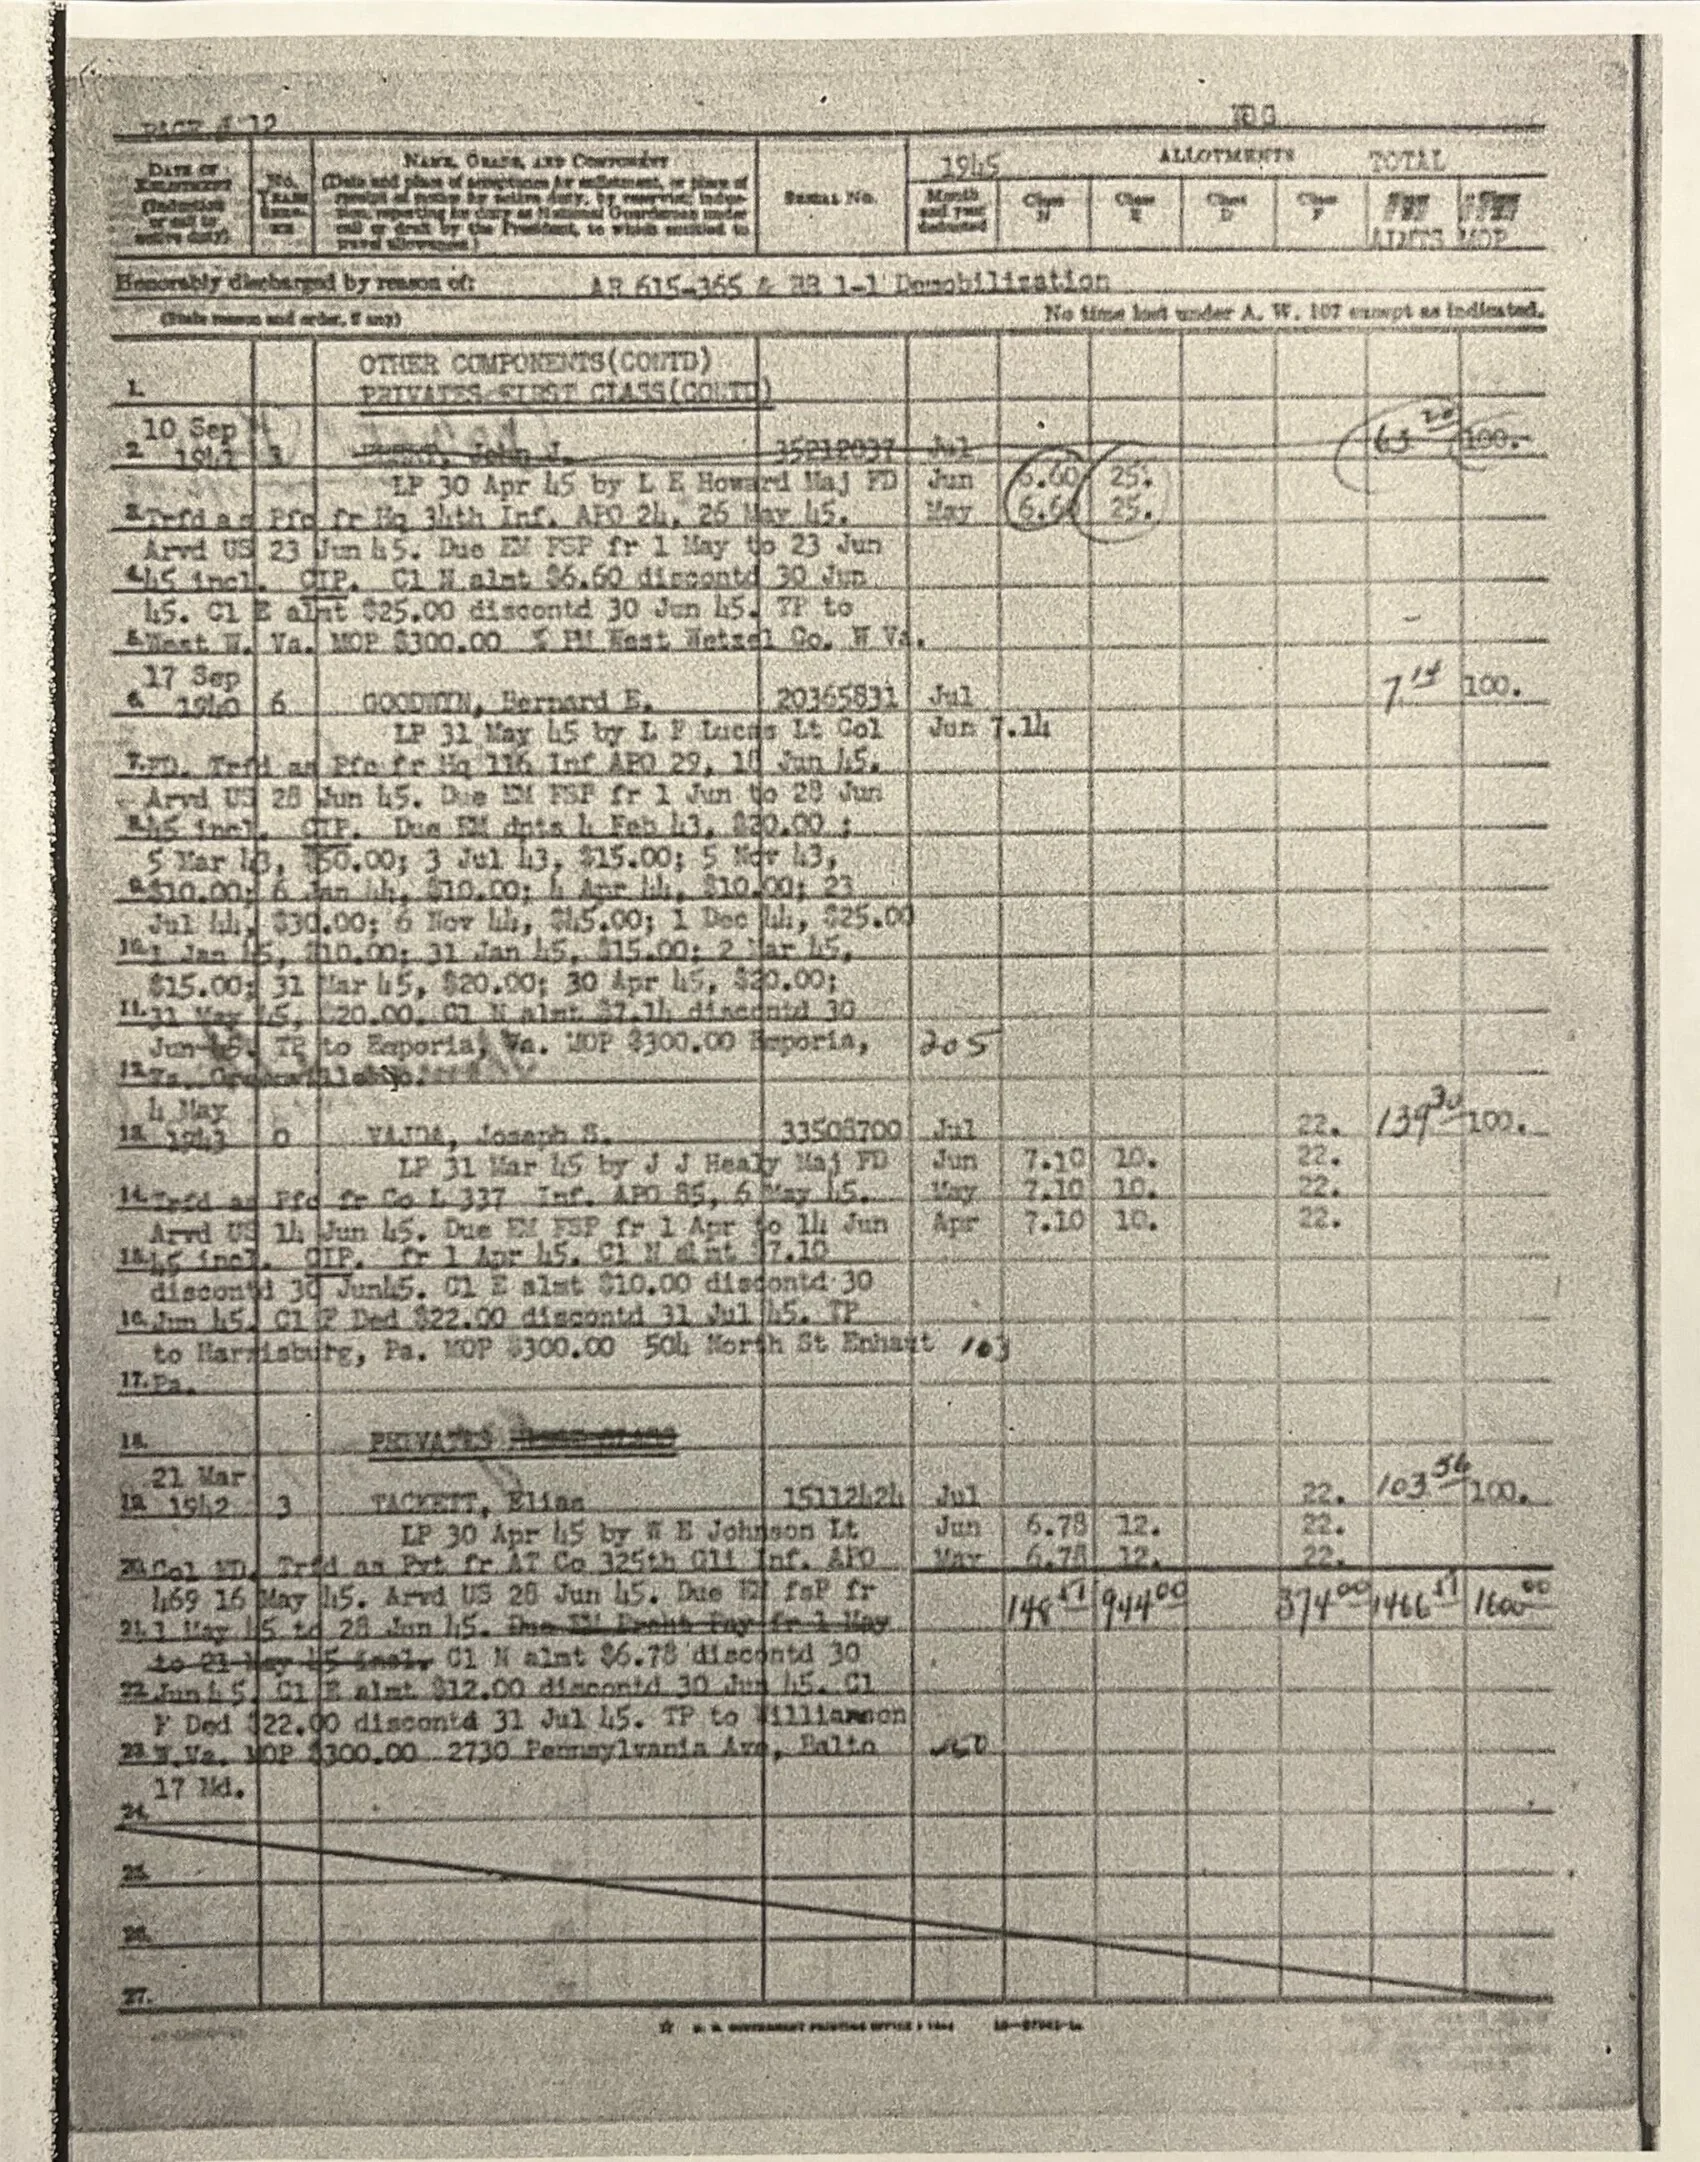 PAGE # 12
DATE OF ENLISTMENT (Induction or call to active duty)
No. YEARS
NAME, GRADE, AND COMPONENT
(Date and place of acceptance for enlistment, or place of
receipt of notice for active duty, by reservist; indus-
tion, reporting for duty as National Guardsman under
call or draft by the President, to which entitled to
travel allowances)
SERIAL No.
1945
Month and year deducted
ALLOTMENTS
Class N
Class E
Class D
Class F
TOTAL
ALMTS MOP
Honorably discharged by reason of: AR 615-365 & RR 1-1 Demobilization
(State reason and order, if any) No time lost under A. W. 107 except as indicated.
OTHER COMPONENTS(CONTD)
1. PRIVATES FIRST CLASS(CONTD)
10 Sep
2. 1941 3 John J. 35212037 Jul 63 20 100.
LP 30 Apr 45 by L E Howard Maj FD Jun 6.60 25.
3. Trfd as Pfc fr Hq 34th Inf. APO 24, 26 May 45. May 6.60 25.
Arvd US 23 Jun 45. Due EM FSP fr 1 May to 23 Jun
4. 45 incl. CIP. Cl N almt $6.60 discontd 30 Jun
45. Cl E almt $25.00 discontd 30 Jun 45. TP to
5. West W. Va. MOP $300.00 % PM West Wetzel Co. W Va.
17 Sep
6. 1940 6 GOODWYN, Bernard E. 20365831 Jul 7 14 100.
LP 31 May 45 by L F Lucas Lt Col Jun 7.14
7. FD. Trfd as Pfc fr Hq 116 Inf APO 29, 18 Jun 45.
Arvd US 28 Jun 45. Due EM FSP fr 1 Jun to 28 Jun
8. 45 incl. CIP. Due EM dpts 4 Feb 43, $20.00 ;
5 Mar 43, $50.00; 3 Jul 43, $15.00; 5 Nov 43,
9. $10.00; 6 Jan 44, $10.00; 4 Apr 44, $10.00; 23
Jul 44, $30.00; 6 Nov 44, $45.00; 1 Dec 44, $25.00
10. 1 Jan 45, $10.00; 31 Jan 45, $15.00; 2 Mar 45,
$15.00; 31 Mar 45, $20.00; 30 Apr 45, $20.00;
11. 31 May 45, $20.00. Cl N almt $7.14 discontd 30
Jun 45. TP to Emporia, Va. MOP $300.00 Emporia, 205
12. Va.
4 May
13. 1943 0 VAJDA, Joseph S. 33508700 Jul 22. 139 30 100.
LP 31 Mar 45 by J J Healy Maj FD Jun 7.10 10. 22.
14. Trfd as Pfc fr Co L 337 Inf. APO 85, 6 May 45. May 7.10 10. 22.
Arvd US 14 Jun 45. Due EM FSP fr 1 Apr to 14 Jun Apr 7.10 10. 22.
15. 45 incl. CIP. fr 1 Apr 45. Cl N almt $7.10
discontd 30 Jun45. Cl E almt $10.00 discontd 30
16. Jun 45. Cl F Ded $22.00 discontd 31 Jul 45. TP
to Harrisburg, Pa. MOP $300.00 504 North St Enhaut 103
17. Pa.
18. PRIVATES FIRST CLASS
21 Mar
19. 1942 3 TACKETT, Elias 15112424 Jul 22. 103 56 100.
LP 30 Apr 45 by W E Johnson Lt Jun 6.78 12. 22.
20. Col FD. Trfd as Pvt fr AT Co 325th Gli Inf. APO May 6.78 12. 22.
469 16 May 45. Arvd US 28 Jun 45. Due EM fsP fr 148 51 944 00 374 00 1466 51 1600 00
21. 1 May 45 to 28 Jun 45. Due EM Pay fr 1 May
to 21 May 45 incl. Cl N almt $6.78 discontd 30
22. Jun45. Cl E almt $12.00 discontd 30 Jun 45. Cl
F Ded $22.00 discontd 31 Jul 45. TP to Williamson
23. W.Va. MOP $300.00 2730 Pennsylvania Ave, Balto
17 Md.
24.
25.
26.
27.
☆ U. S. GOVERNMENT PRINTING OFFICE